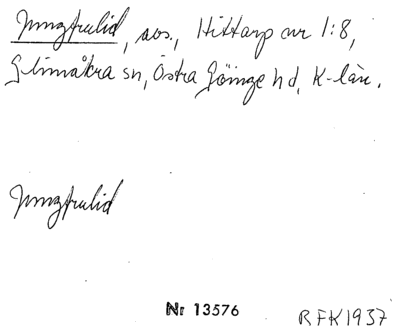 Jungfrulid, avs., Hittarp nr 1:8,
Glimåkra sn, Östra Göinge hd, K-län.
Jungfrulid
Nr 13576
RFK1937